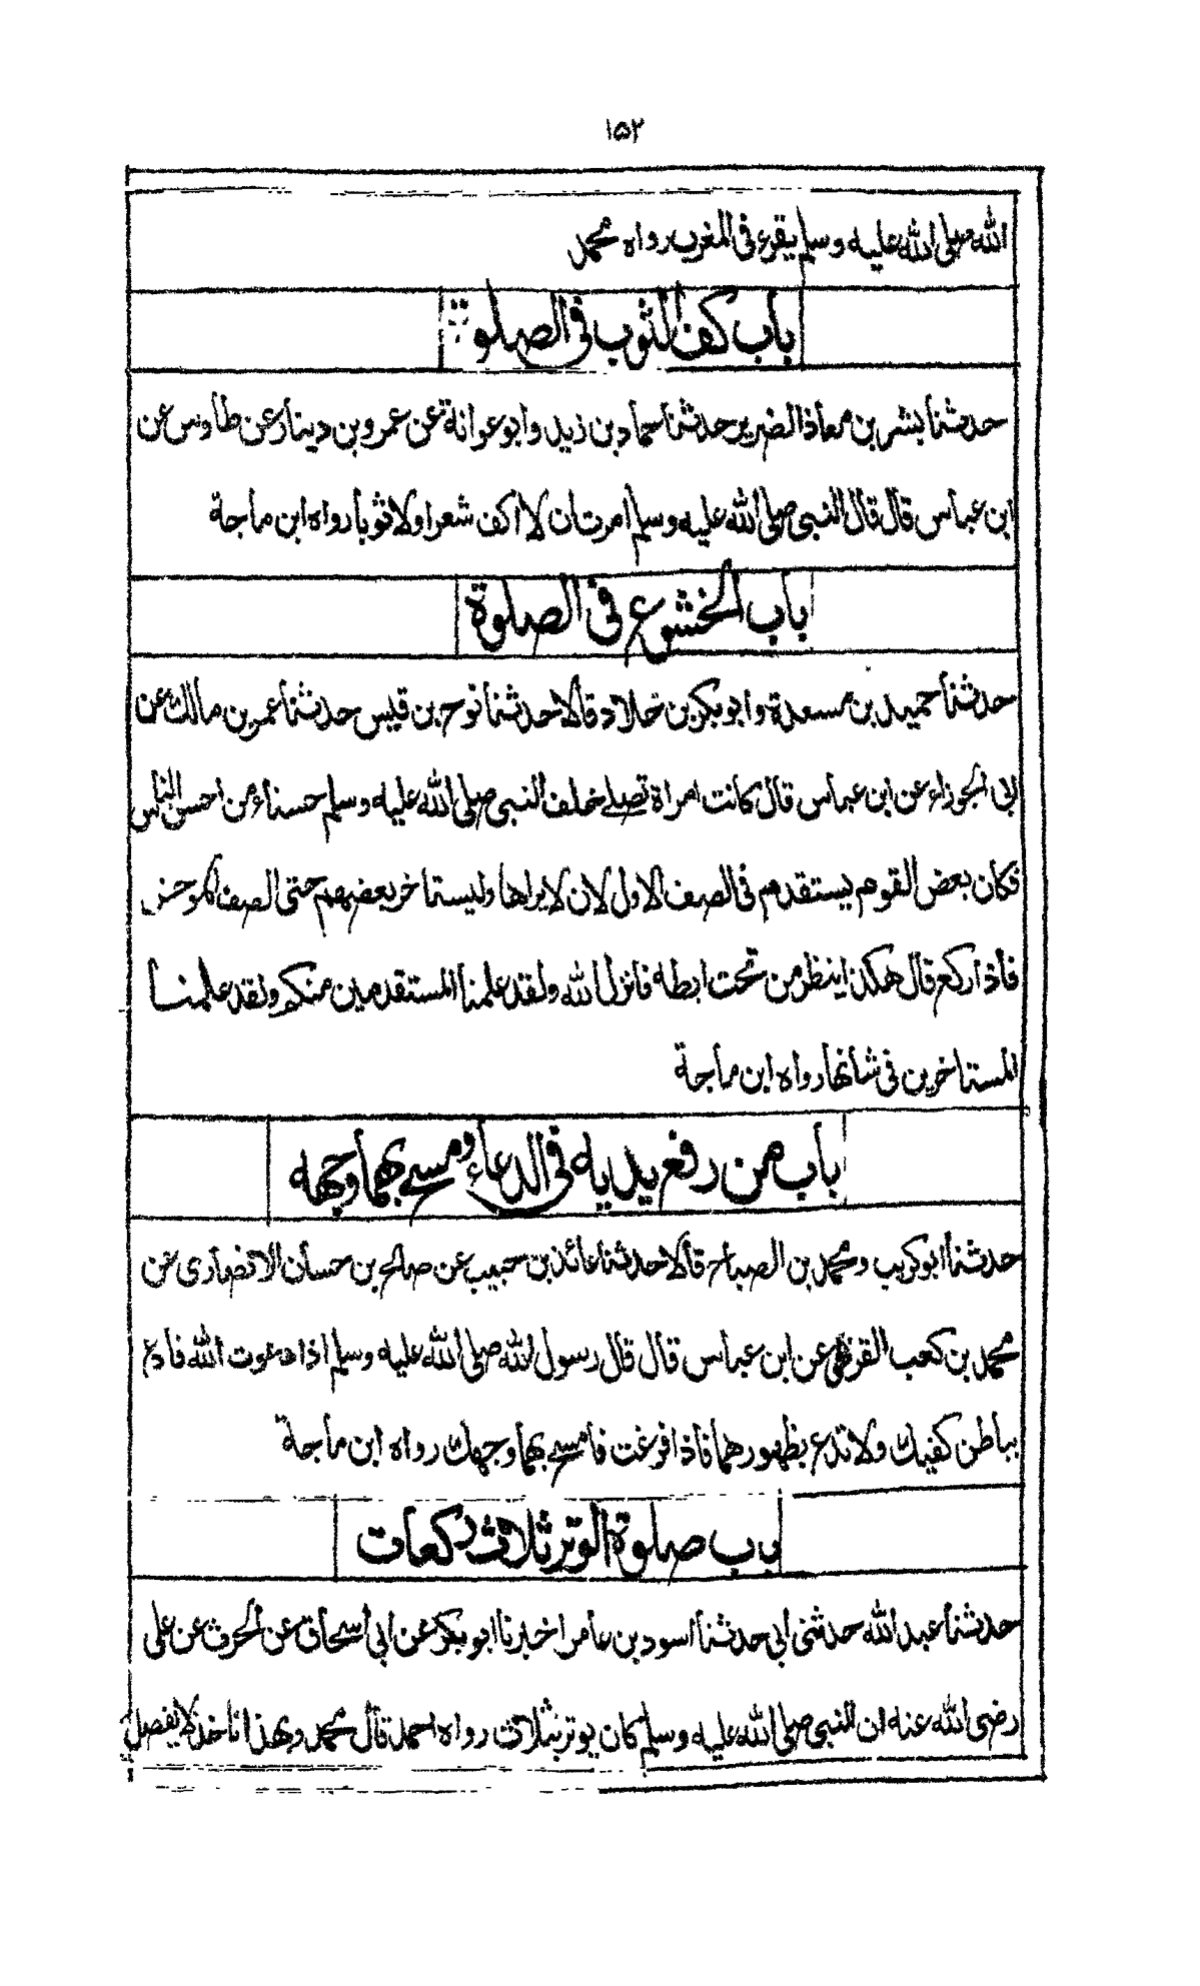 ۱۵۲
الله صلى الله عليه وسلم يقرء فى المغرب رواه محمد
باب كف الثوب فى الصلوة
حدثنا بشر بن معاذ الضرير حدثنا حماد بن زيد وابو عوانة عن عمرو بن دينار عن طاوس عن
ابن عباس قال قال النبى صلى الله عليه وسلم امرت ان لا اكف شعرا ولا ثوبا رواه ابن ماجة
باب الخشوع فى الصلوة
حدثنا حميد بن مسعدة وابو بكر بن خلاد قالا حدثنا نوح بن قيس حدثنا عمر بن مالك عن
ابى الجوزاء عن ابن عباس قال كانت امراة تصلے خلف النبى صلى الله عليه وسلم حسناء من احسن الناس
فكان بعض القوم يستقدم فى الصف الاول لان لا يراها وليستاخر بعضهم حتى الصف الموخر
فاذا ركع قال هكذا ينظر من تحت ابطه فانزل الله ولقد علمنا المستقدمين منكم ولقد علمنا
المستاخرين فى شانها رواه ابن ماجة
باب من رفع يديه فى الدعاء ومسح بهما وجهه
حدثنا ابو كريب ومحمد بن الصباح قالا حدثنا عائذ بن حبيب عن صالح بن حسان الانصارى عن
محمد بن كعب القرظى عن ابن عباس قال قال رسول الله صلى الله عليه وسلم اذا دعوت الله فادع
بباطن كفيك ولا تدع بظهورهما فاذا فرغت فامسح بهما وجهك رواه ابن ماجة
باب صلوة الوتر ثلاث ركعات
حدثنا عبد الله حدثنى ابى حدثنا اسود بن عامر اخبرنا ابو بكر عن ابى اسحاق عن الحرث عن على
رضى الله عنه ان النبى صلى الله عليه وسلم كان يوتر بثلاث رواه احمد قال محمد وبهذا ناخذ لا يفصل